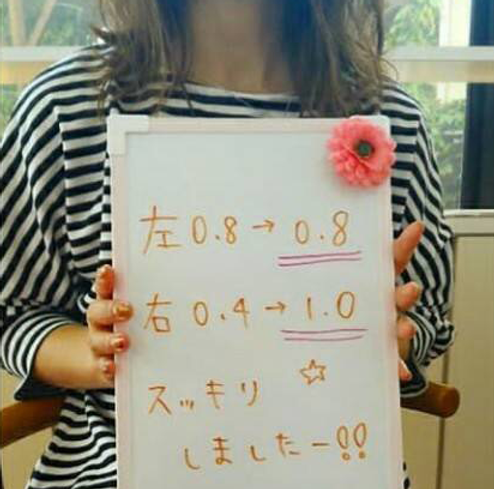 左0.8→0.8
右0.4→1.0
スッキリ ☆
しましたー!!